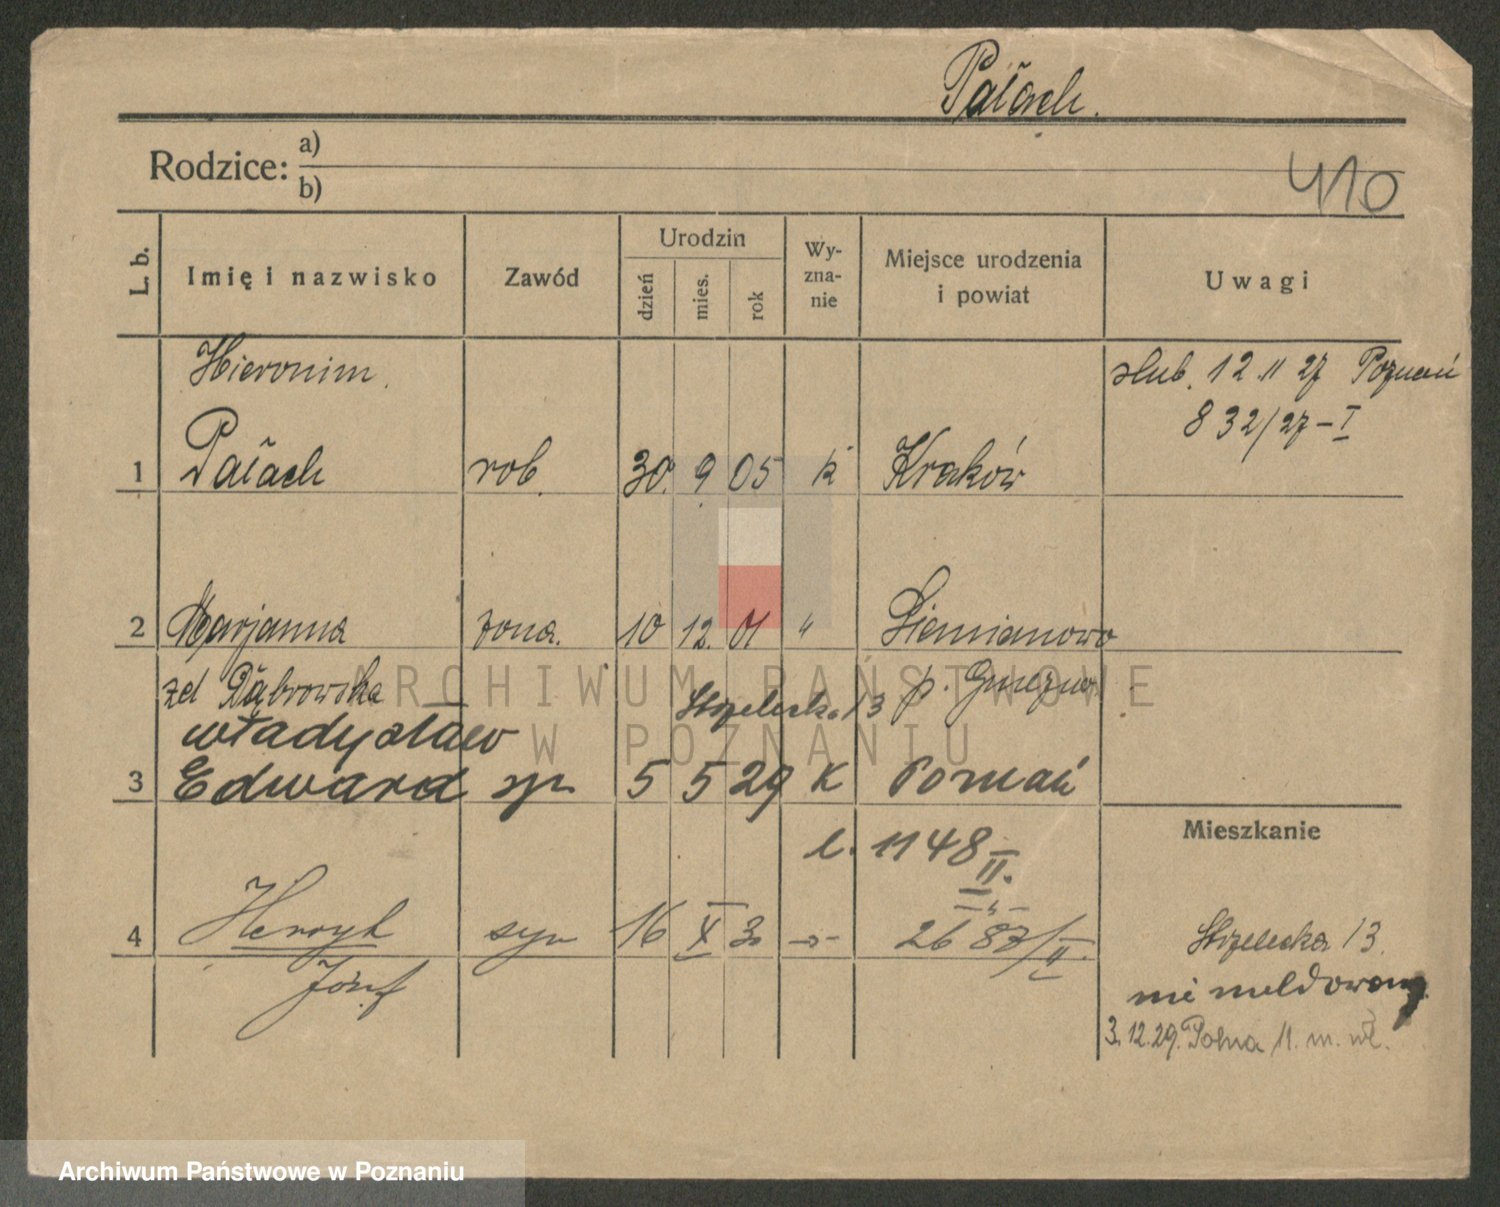 Pałach.
Rodzice: a)
b)
410
L. b. Imię i nazwisko Zawód Urodzin dzień mies. rok Wy-zna-nie Miejsce urodzenia i powiat Uwagi
Hieronim. ślub. 12 11 27 Poznań
832/27-I
1 Pałach rob. 30. 9 05 k Kraków
2 Marjanna żona. 10 12. 01 " Siemianowo
zd Dąbrowska Strzelecka 13 p. Gniezno
Władysław
3 Edward syn 5 5 29 K Poznań
Mieszkanie
l. 1148 II.
4 Henryk syn 16 X 30 -„- 2687/II.
Józef
Strzelecka 13.
nie meldowany
3.12.29. Polna 11. m. wł.
ARCHIWUM PAŃSTWOWE
W POZNANIU
Archiwum Państwowe w Poznaniu